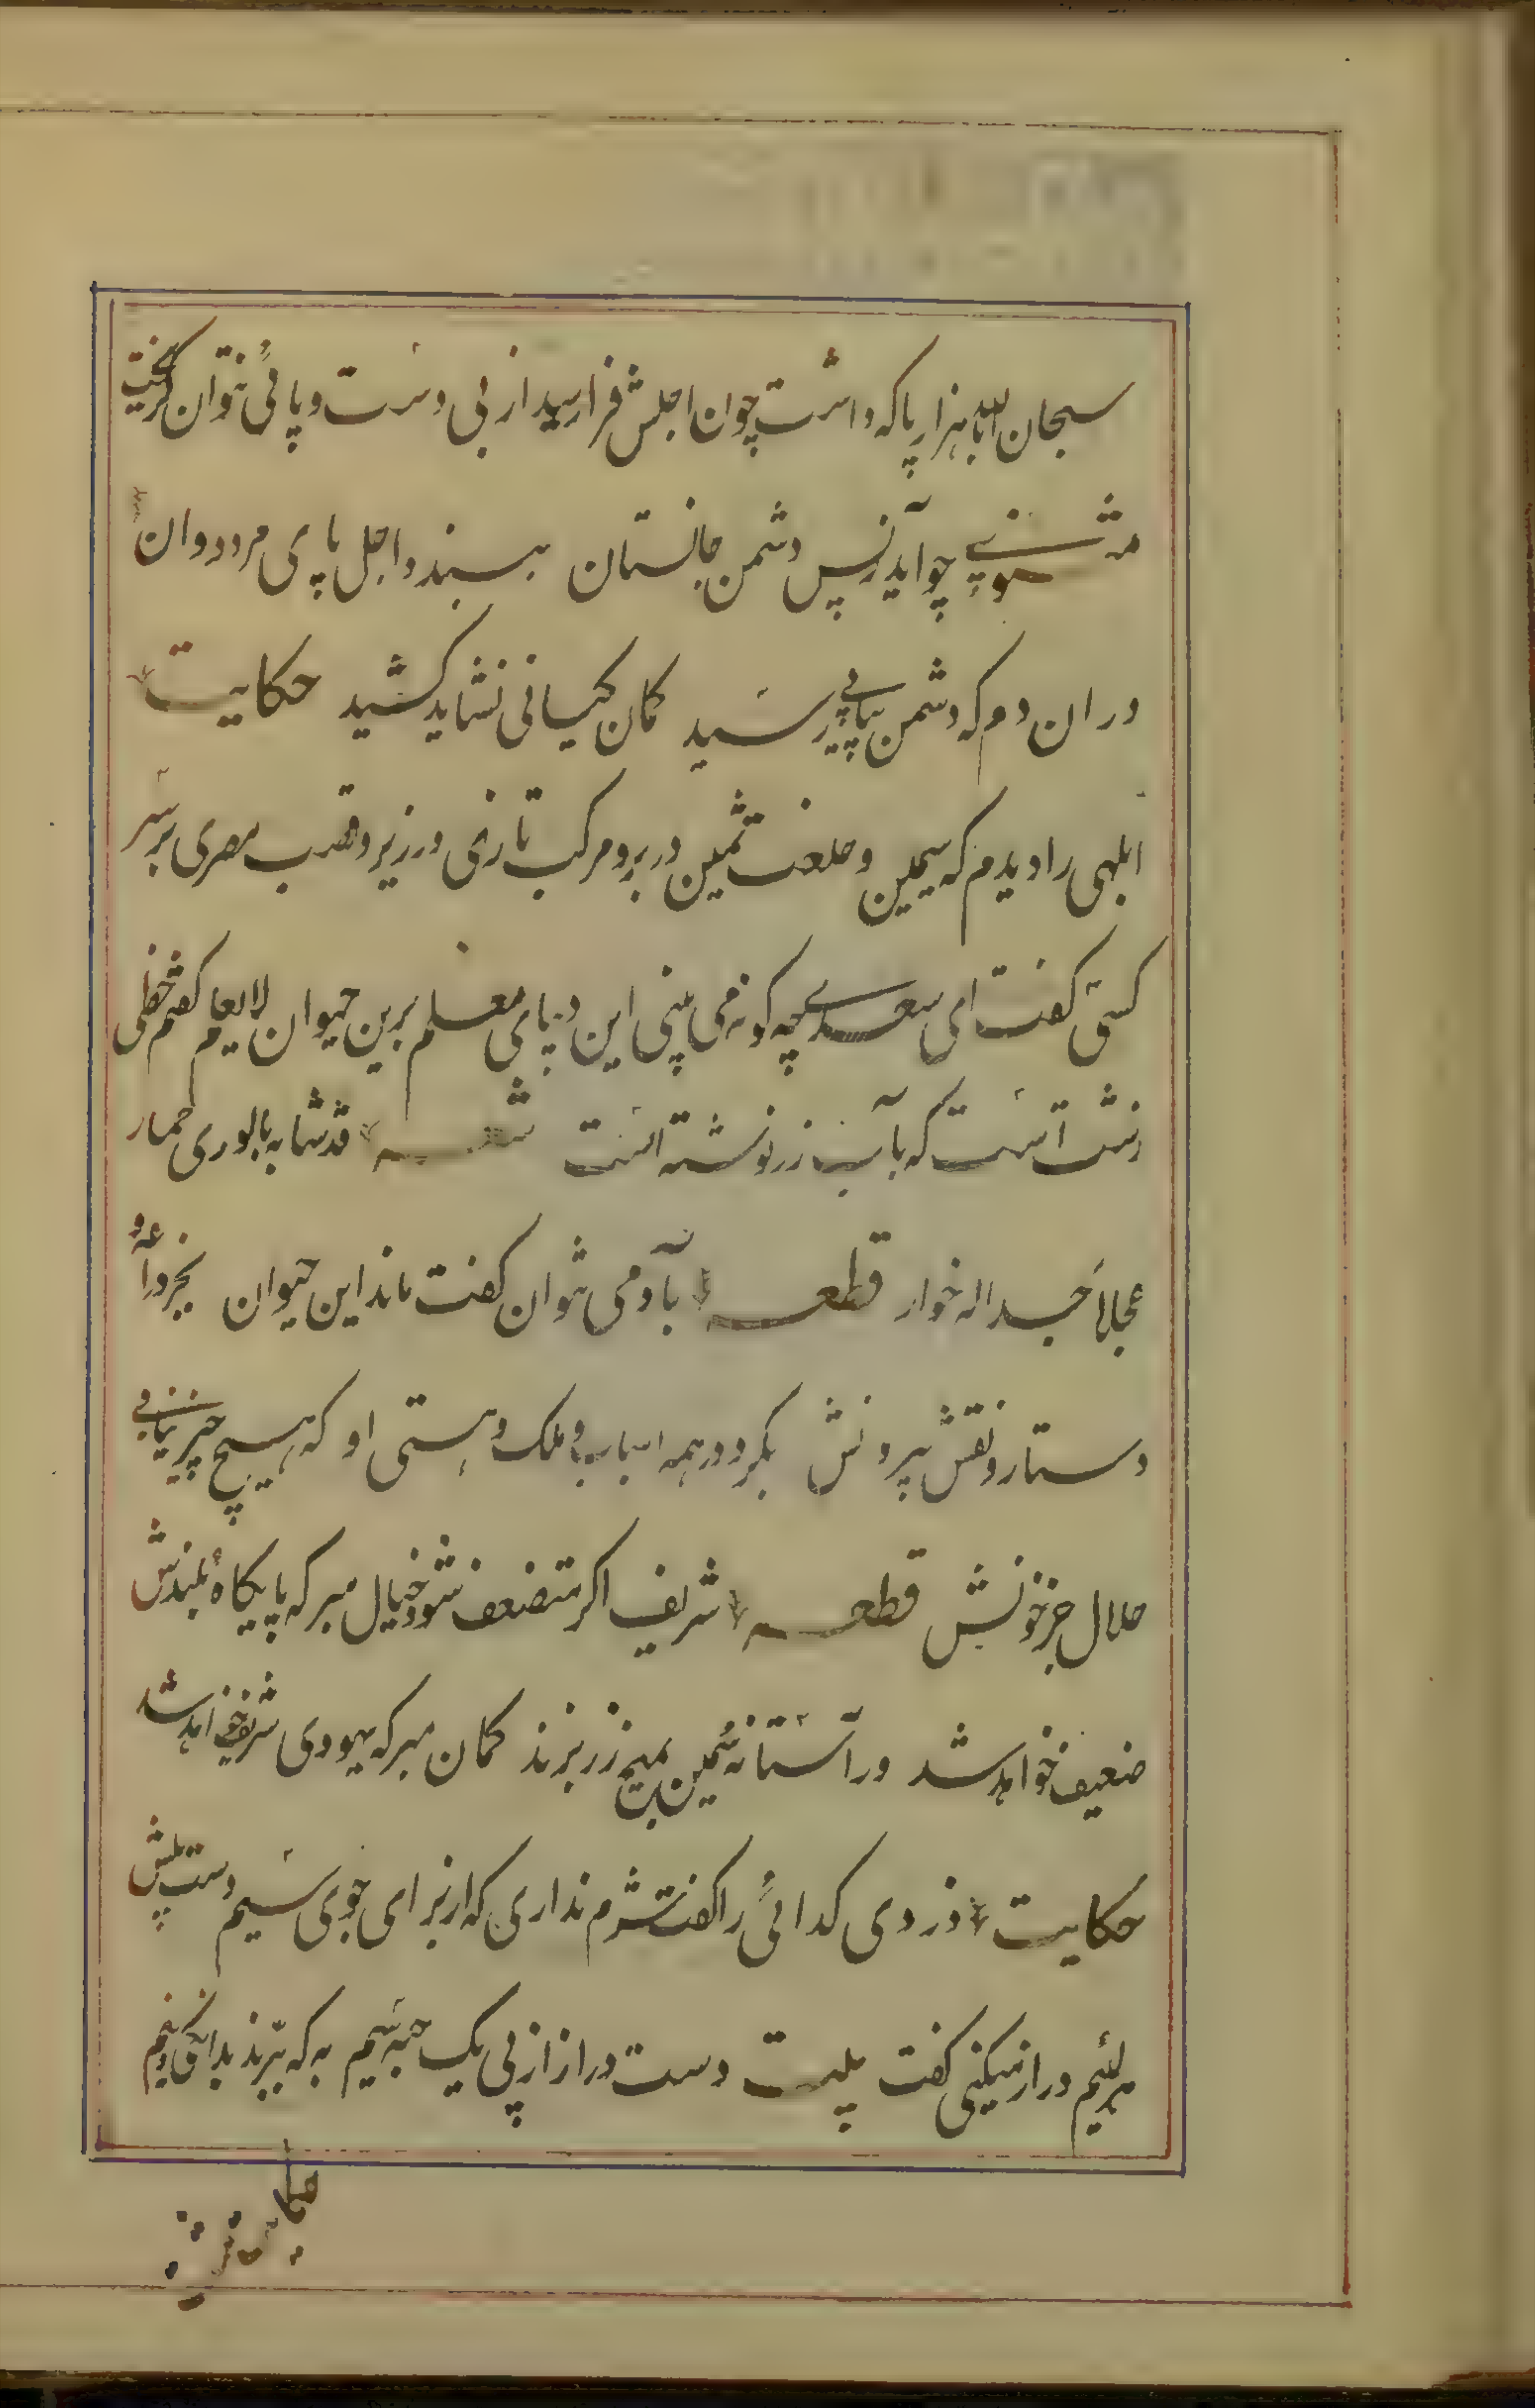 سبحان الله با هزار پا که داشت چون اجلش فرا رسید از بی دست و پائی نتوان گریخت
مثنوی چو آید ز پس دشمن جانستان ببندد اجل پای مرد دوان
در ان دم که دشمن پیاپی رسید کمان کیانی نشاید کشید حکایت
ابلهی را دیدم که سیمین و خلعت ثمین در بر و مرکب تازی در زیر و قصب مصری بر سر
کسی کفت ای سعدی چه کونه می بینی این دیبای معلم برین حیوان لا یعلم کفتم خطی
زشت است که بآب زر نوشته است شعر قد شابه بالوری حمار
عجلا جسدا له خوار قطعه بآدمی نتوان کفت ماند این حیوان بجز دراعه و
دستار و نقش بیرونش بکرد در همه اسباب و ملک و هستی او که هیچ چیز نیابی
حلال جز خونش قطعه شریف اکر متضعف شود خیال مبر که پایکاه بلندش
ضعیف خواهد شد ور آستانه سیمین بمیخ زر بزند کمان مبر که یهودی شریف خواهد شد
حکایت دزدی کدائی را کفت شرم نداری که از برای جوی سیم دست پیش
هر لئیم دراز میکنی کفت بیت دست دراز از پی یک حبه سیم به که ببرند بدانکی و نیم